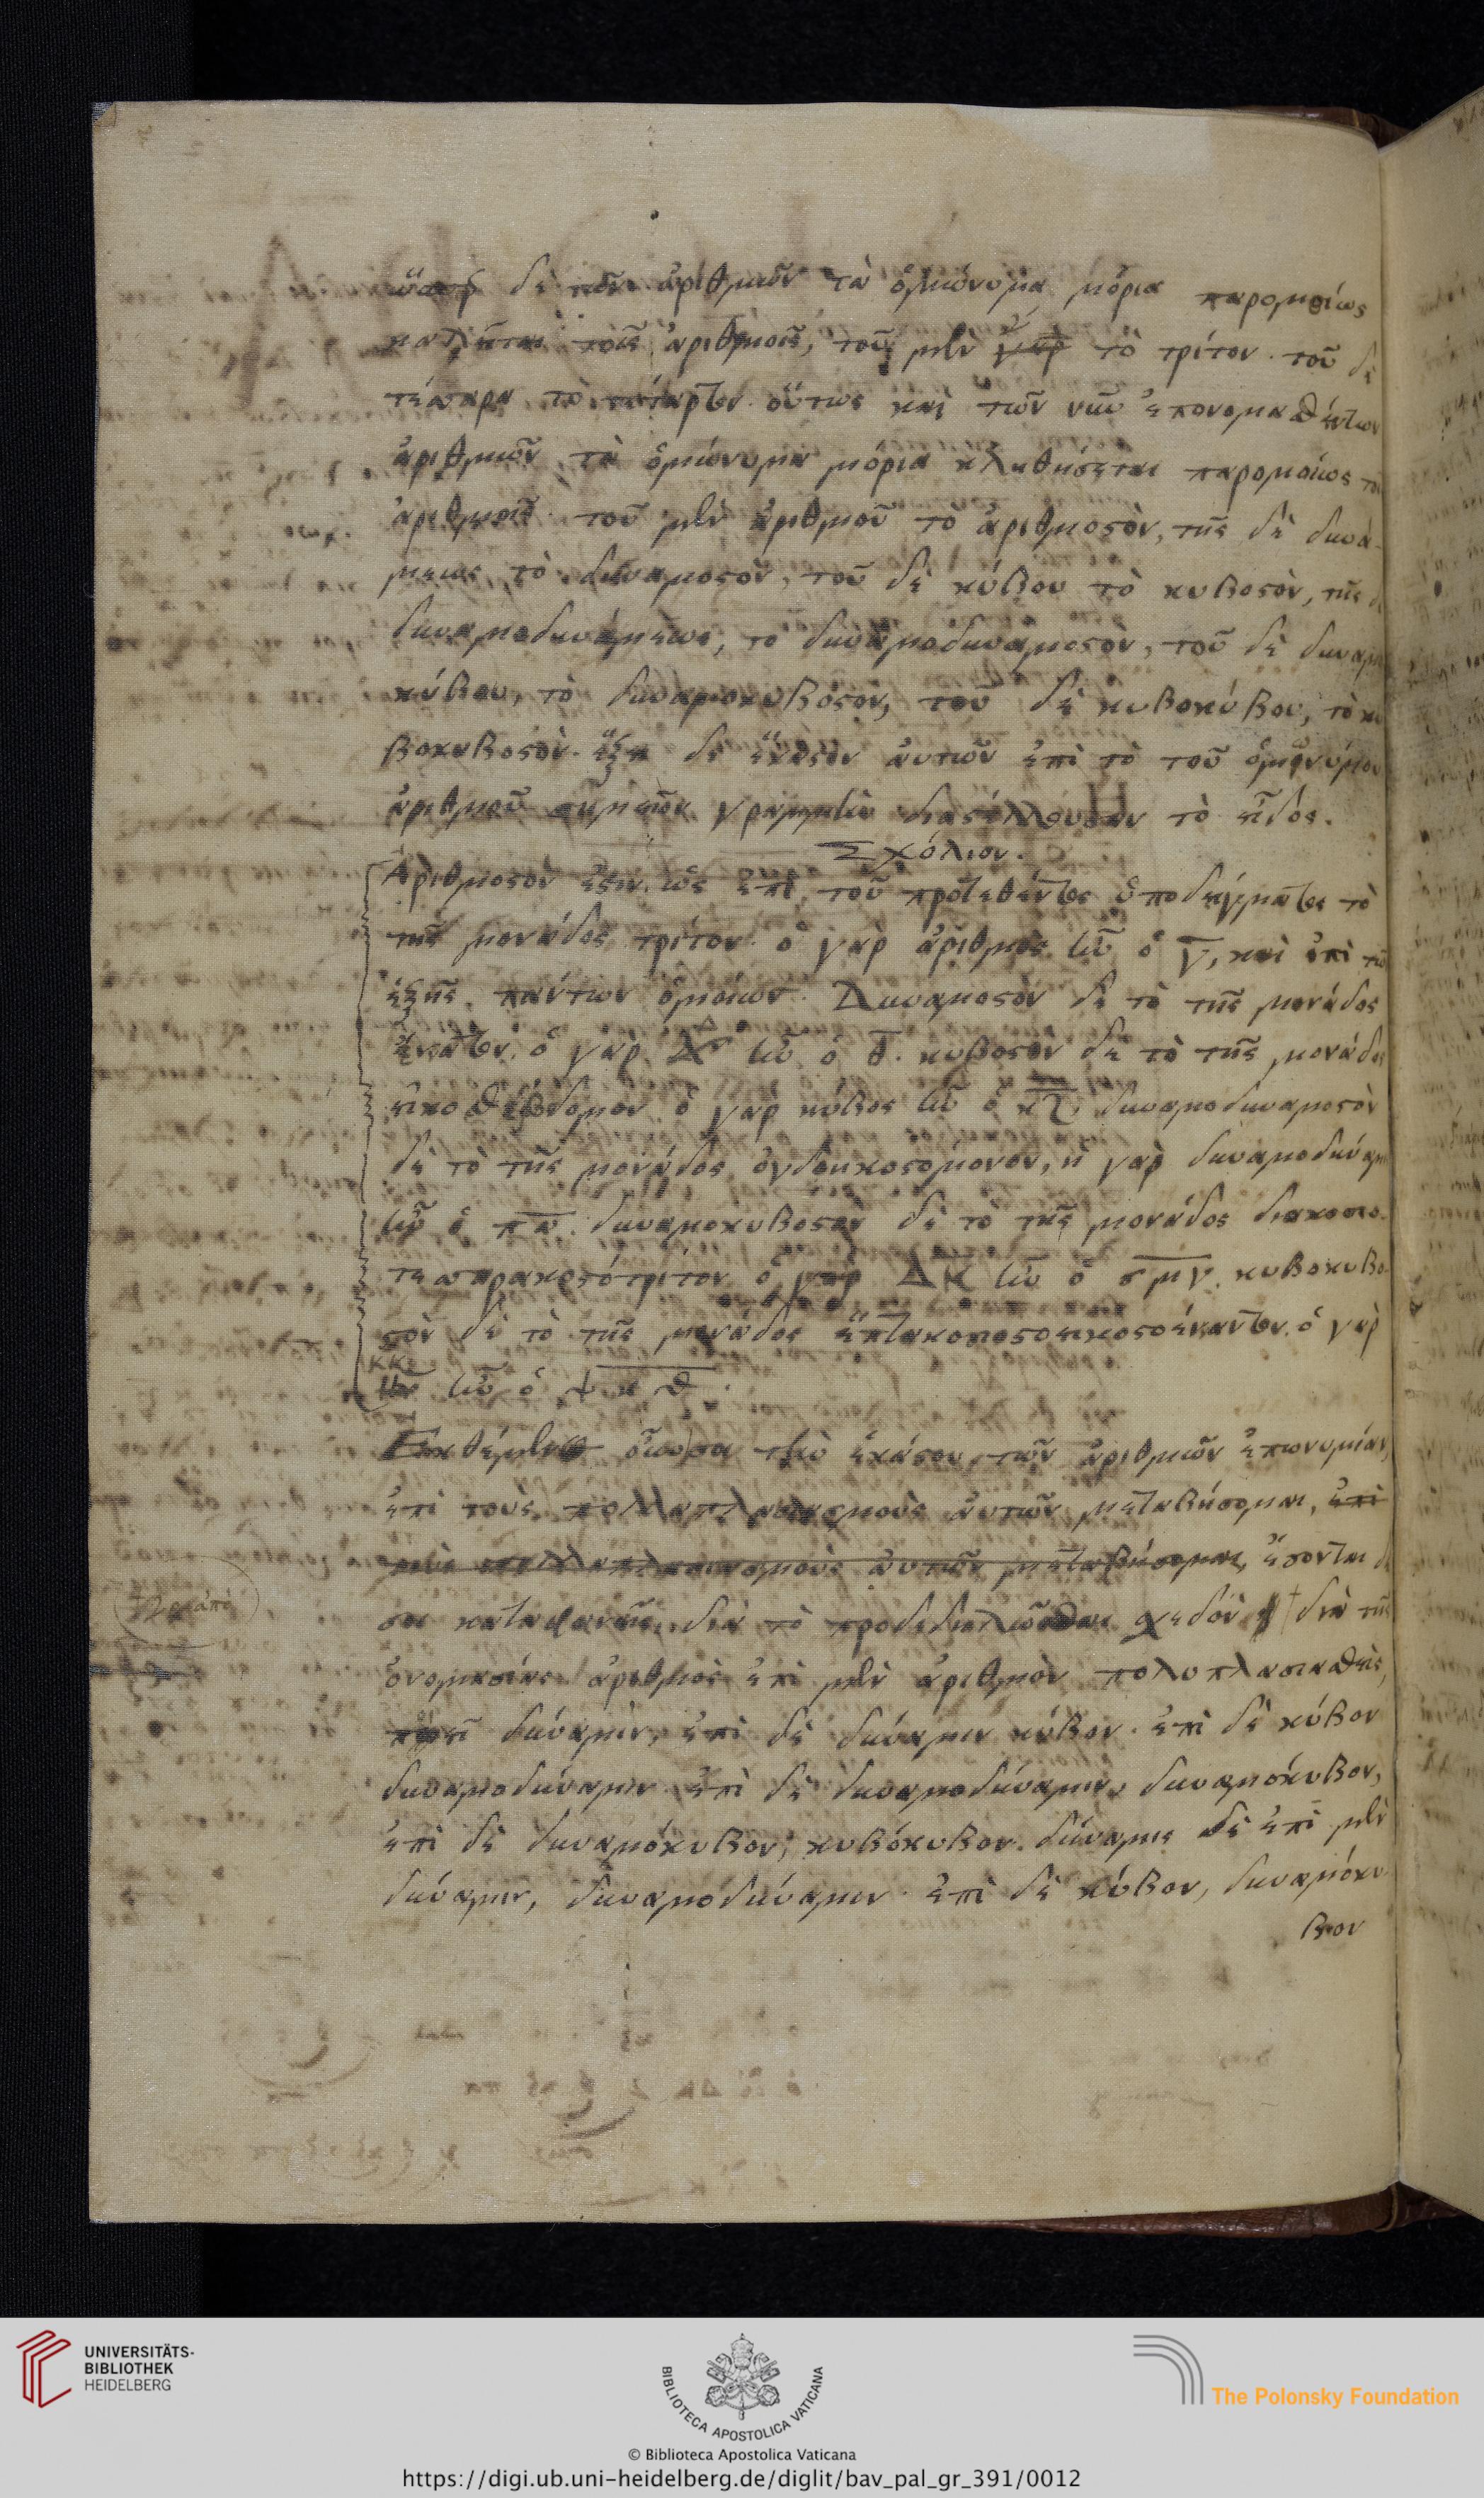 ὥσπερ δὲ τῶν ἀριθμῶν τὰ ὁμώνυμα μόρια παρομοίως
καλεῖται τοῖς ἀριθμοῖς, τοῦ μὲν γὰρ γ̄ τὸ τρίτον. τοῦ δὲ
τέσσαρα τὸ τέταρτον. οὕτως καὶ τῶν νῦν ἐπονομασθέντων
ἀριθμῶν τὰ ὁμώνυμα μόρια κληθήσεται παρομοίως τοῖς
ἀριθμοῖς. τοῦ μὲν ἀριθμοῦ τὸ ἀριθμοστὸν, τῆς δὲ δυνά-
μεως τὸ δυναμοστὸν, τοῦ δὲ κύβου τὸ κυβοστὸν, τῆς δὲ
δυναμοδυνάμεως, τὸ δυναμοδυναμοστὸν, τοῦ δὲ δυναμο
κύβου, τὸ δυναμοκυβοστὸν, τοῦ δὲ κυβοκύβου, τὸ κυ
βοκυβοστὸν. ἕξει δὲ ἕκαστον αὐτῶν ἐπὶ τὸ τοῦ ὁμωνύμου
ἀριθμοῦ σημεῖον γραμμὴν διαστέλλουσαν τὸ εἶδος.
Σχόλιον.
Ἀριθμοστὸν ἐστιν. ὡς ἐπὶ τοῦ προτεθέντος ὑποδείγματος τὸ
τῆς μονάδος τρίτον. ὁ γὰρ ἀριθμὸς ἦν ὁ γ̄, καὶ ἐπὶ τῶν
ἑξῆς πάντων ὁμοίως. Δυναμοστὸν δὲ τὸ τῆς μονάδος
ἔνατον. ὁ γὰρ Δ ἦν ὁ θ̄. κυβοστὸν δὲ τὸ τῆς μονάδος
εἰκοσθέβδομον ὁ γὰρ κύβος ἦν ὁ κζ̄, δυναμοδυναμοστὸν
δὲ τὸ τῆς μονάδος ὀγδοηκοστόμονον, ἡ γὰρ δυναμοδύναμις
ἦν ὁ πᾱ. δυναμοκυβοστὸν δὲ τὸ τῆς μονάδος διακοσιο-
τεσσαρακοστότριτον ὁ γὰρ ΔΚ ἦν ὁ σμγ̄. κυβοκυβο-
στὸν δὲ τὸ τῆς μονάδος ἑπτακοσιοστοεικοστοένατον. ὁ γὰρ
ΚΚ ἦν ὁ ψκθ̄.
Ἐκθέμενος οὖν σοι τὴν ἑκάστου τῶν ἀριθμῶν ἐπωνυμίαν,
ἐπὶ τοὺς πολλαπλασιασμοὺς αὐτῶν μεταβήσομαι, ἐπὶ
τοὺς πολλαπλασιασμοὺς αὐτῶν μεταβήσομαι, ἔσονται δέ
σοι καταφανεῖς, διὰ τὸ προδεδηλῶσθαι σχεδὸν διὰ τῆς
ὀνομασίας. ἀριθμὸς ἐπὶ μὲν ἀριθμὸν πολυπλασιασθεὶς,
ποιεῖ δύναμιν, ἐπὶ δὲ δύναμιν κύβον. ἐπὶ δὲ κύβον
δυναμοδύναμιν. ἐπὶ δὲ δυναμοδύναμιν, δυναμόκυβον,
ἐπὶ δὲ δυναμόκυβον, κυβόκυβον. δύναμις δὲ ἐπὶ μὲν
δύναμιν, δυναμοδύναμιν. ἐπὶ δὲ κύβον, δυναμόκυ
βον
UNIVERSITÄTS-
BIBLIOTHEK
HEIDELBERG
BIBLIOTHECA APOSTOLICA VATICANA
The Polonsky Foundation
© Biblioteca Apostolica Vaticana
https://digi.ub.uni-heidelberg.de/diglit/bav_pal_gr_391/0012